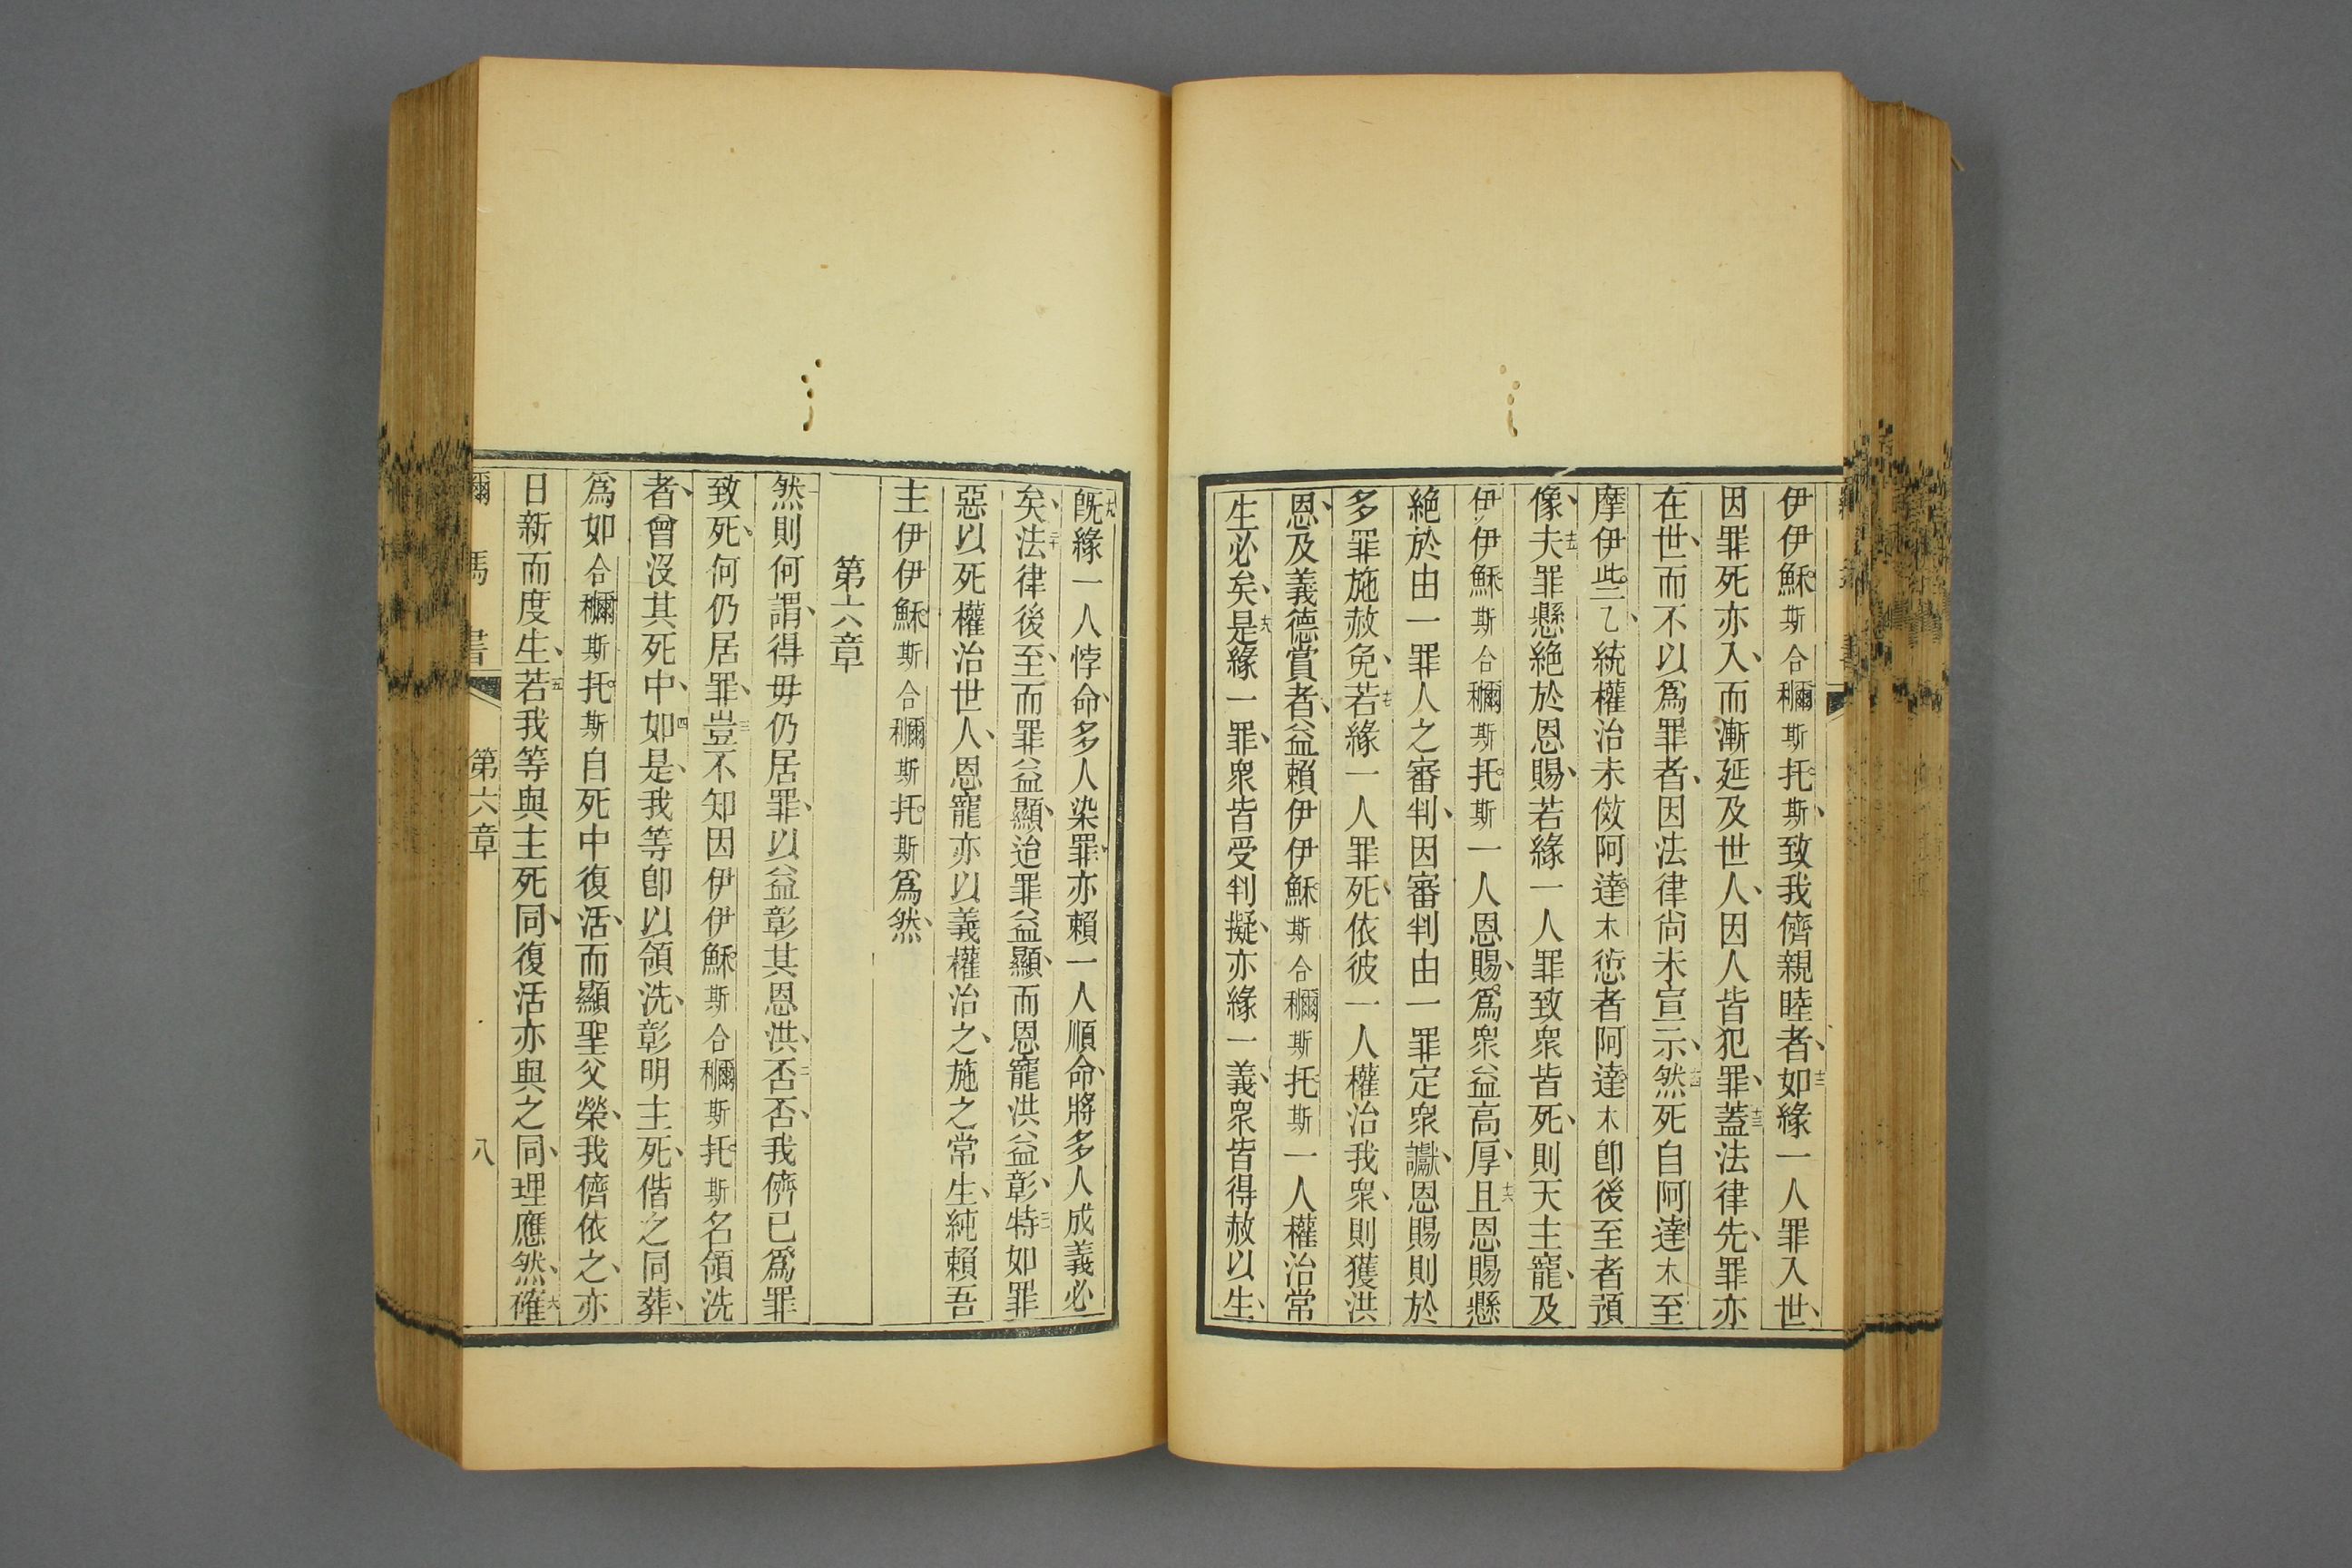 伊伊穌斯合穪斯托斯致我儕親睦者如十二緣一人罪入世
因罪死亦入而漸延及世人因人皆犯罪十三蓋法律先罪亦
在世而不以爲罪者因法律尚未宣示十四然死自阿達木至
摩伊些乙統權治未傚阿達木愆者阿達木卽後至者預
像十五夫罪懸絕於恩賜若緣一人罪致衆皆死則天主寵及
伊伊穌斯合穪斯托斯一人恩賜爲衆益高厚十六且恩賜懸
絕於由一罪人之審判因審判由一罪定衆讞恩賜則於
多罪施赦免十七若緣一人罪死依彼一人權治我衆則獲洪
恩及義德賞者益賴伊伊穌斯合穪斯托斯一人權治常
生必矣十八是緣一罪衆皆受判擬亦緣一義衆皆得赦以生
十九旣緣一人悖命多人染罪亦賴一人順命將多人成義必
矣二十法律後至而罪益顯迨罪益顯而恩寵洪益彰二一特如罪
惡以死權治世人恩寵亦以義權治之施之常生純賴吾
主伊伊穌斯合穪斯托斯爲然
第六章
一然則何謂得毋仍居罪以益彰其恩洪二否否我儕已爲罪
致死何仍居罪三豈不知因伊伊穌斯合穪斯托斯名領洗
者曾沒其死中四如是我等卽以領洗彰明主死偕之同葬
爲如合穪斯托斯自死中復活而顯聖父榮我儕依之亦
日新而度生五若我等與主死同復活亦與之同理應然六確
爾馬書 第六章 八